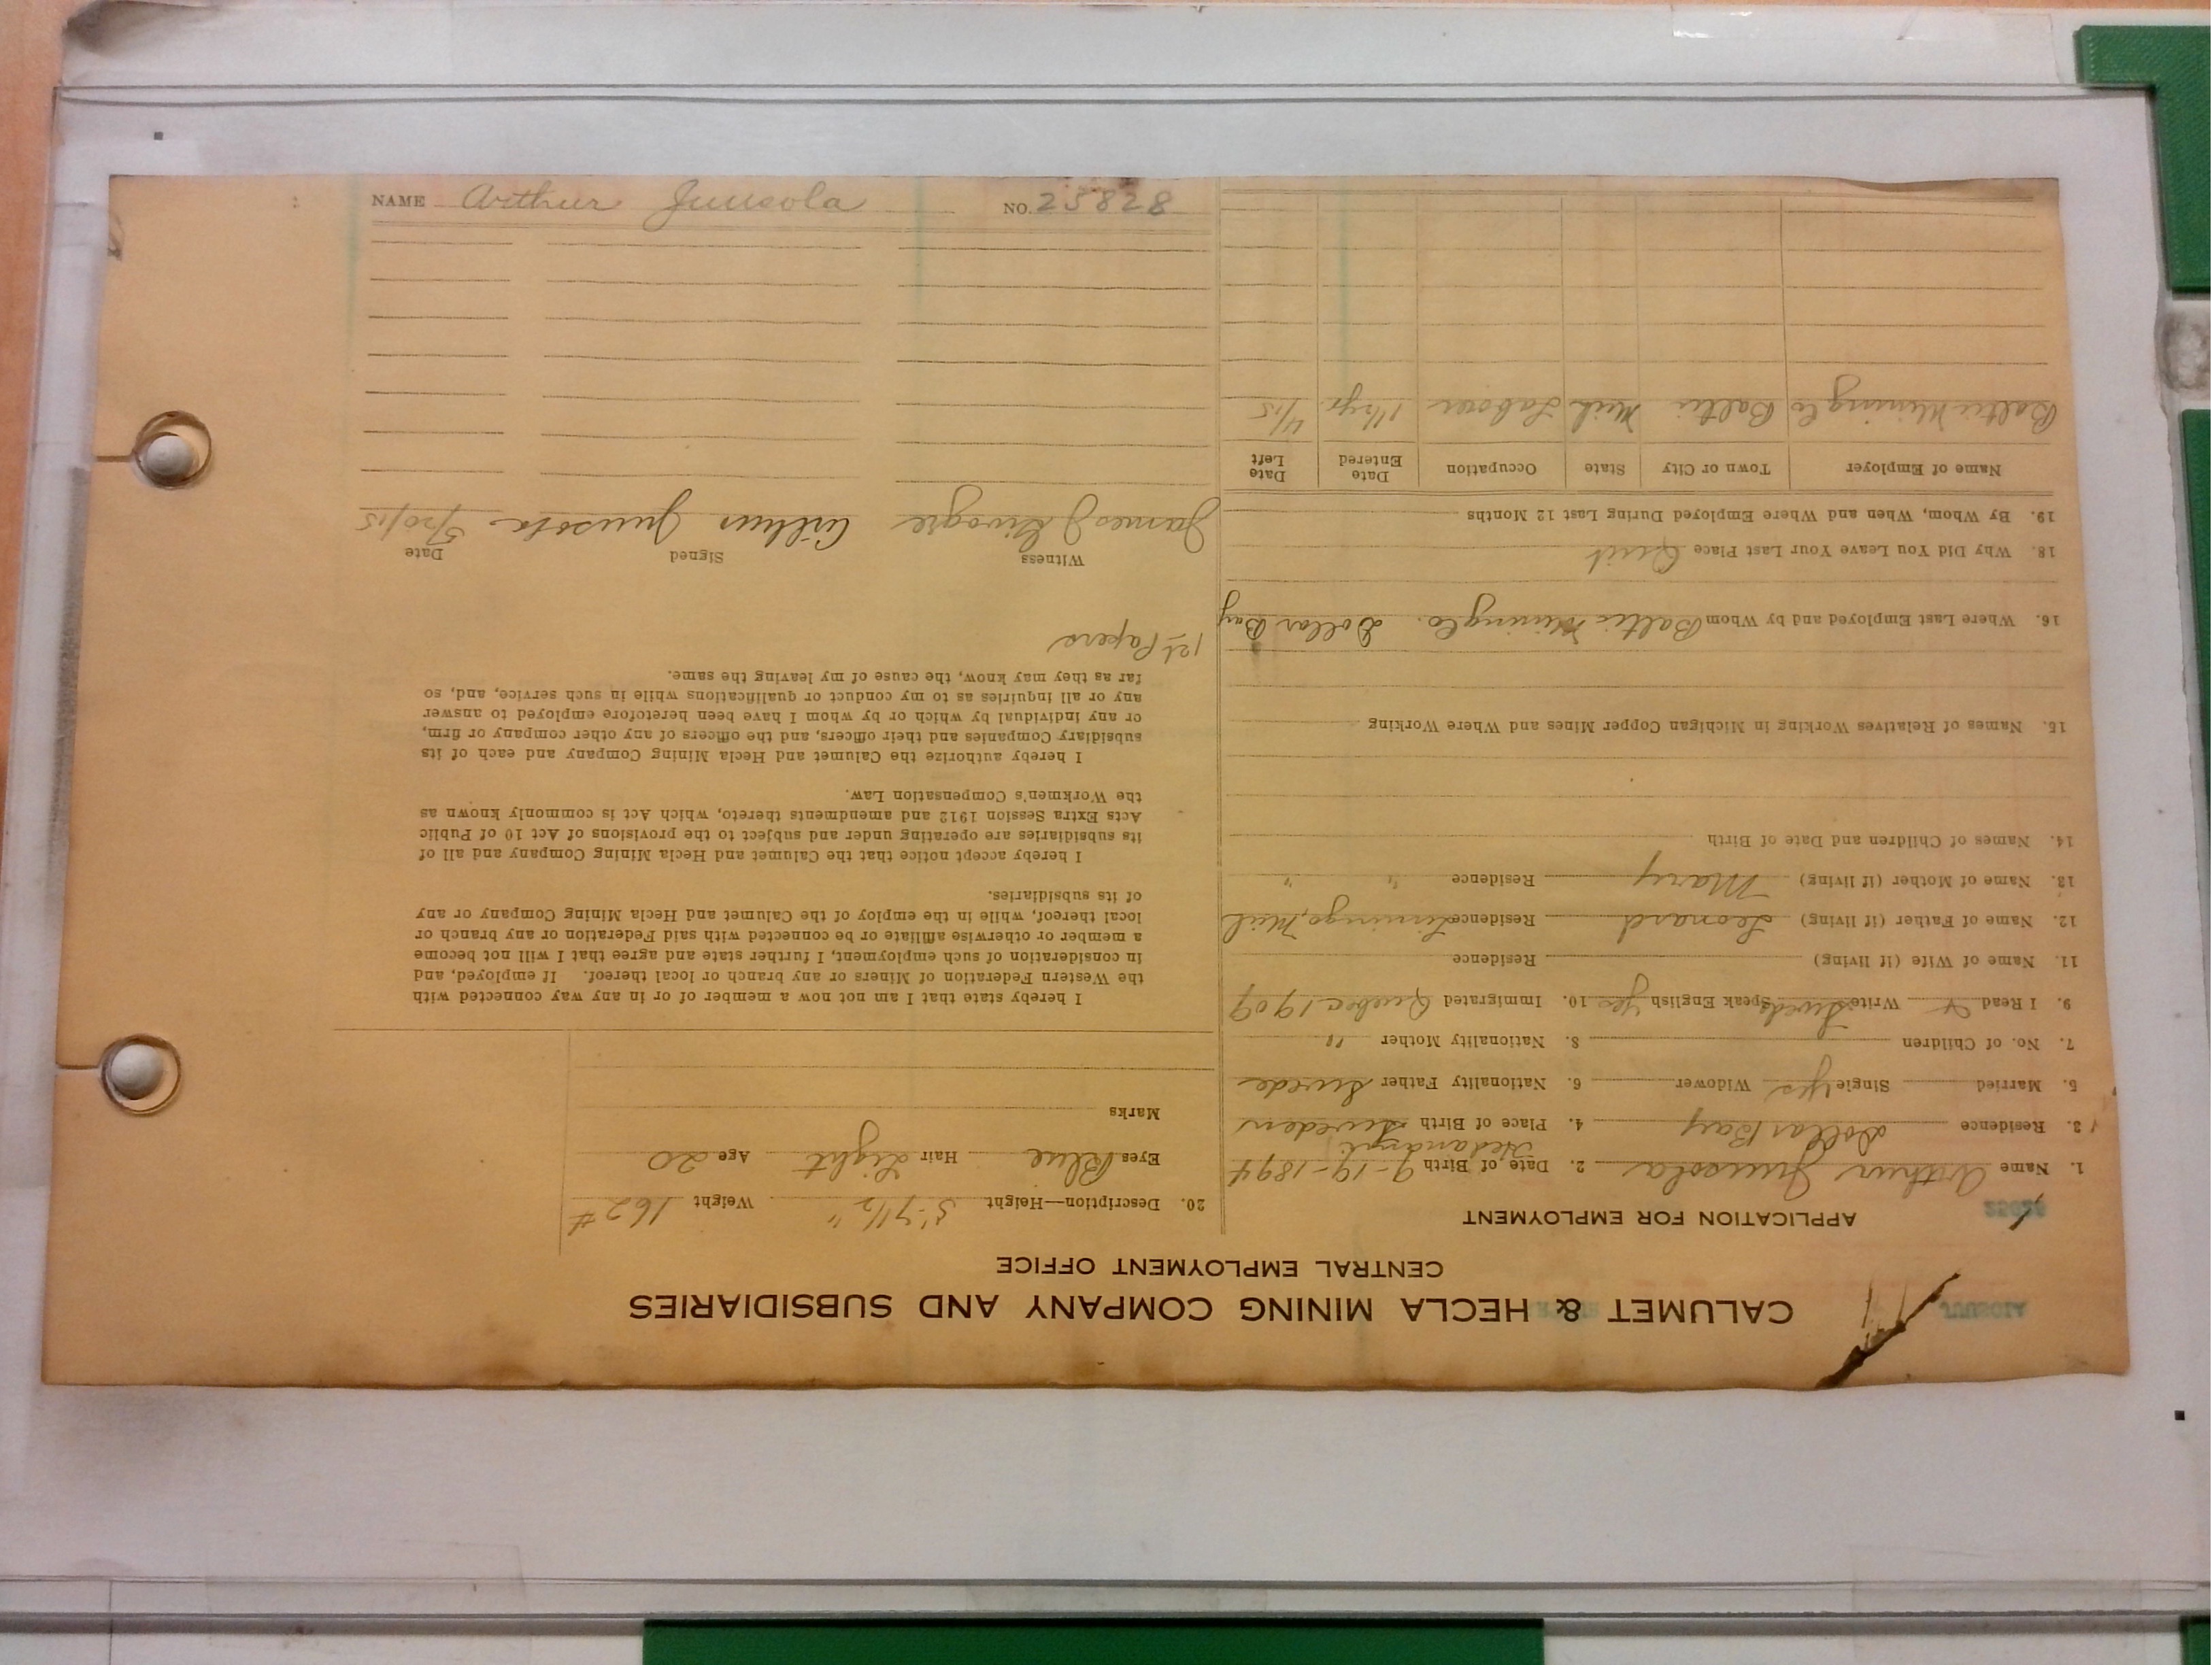 CALUMET & HECLA MINING COMPANY AND SUBSIDIARIES
CENTRAL EMPLOYMENT OFFICE
APPLICATION FOR EMPLOYMENT
1. Name Arthur Juusola 2. Date of Birth 9-19-1894
3. Residence Dollar Bay 4. Place of Birth Sweden
5. Married Single Yes Widower 6. Nationality Father Swede
7. No. of Children 8. Nationality Mother "
9. I Read Write Swede Speak English Yes 10. Immigrated Quebec 1909
11. Name of Wife (if living) Residence
12. Name of Father (if living) Leonard Residence Liminga, Mich
13. Name of Mother (if living) Mary Residence " "
14. Names of Children and Date of Birth
15. Names of Relatives Working in Michigan Copper Mines and Where Working
16. Where Last Employed and by Whom Baltic Mining Co. Dollar Bay
18. Why Did You Leave Your Last Place Quit
19. By Whom, When and Where Employed During Last 12 Months
Name of Employer Town or City State Occupation Date Entered Date Left
Baltic Mining Co Baltic Mich Laborer 1 1/2 yr 4/15
20. Description—Height 5'-7 1/2" Weight 162#
Eyes Blue Hair Light Age 20
Marks
I hereby state that I am not now a member of or in any way connected with
the Western Federation of Miners or any branch or local thereof. If employed, and
in consideration of such employment, I further state and agree that I will not become
a member or otherwise affiliate or be connected with said Federation or any branch or
local thereof, while in the employ of the Calumet and Hecla Mining Company or any
of its subsidiaries.
I hereby accept notice that the Calumet and Hecla Mining Company and all of
its subsidiaries are operating under and subject to the provisions of Act 10 of Public
Acts Extra Session 1912 and amendments thereto, which Act is commonly known as
the Workmen's Compensation Law.
I hereby authorize the Calumet and Hecla Mining Company and each of its
subsidiary Companies and their officers, and the officers of any other company or firm,
or any individual by which or by whom I have been heretofore employed to answer
any or all inquiries as to my conduct or qualifications while in such service, and, so
far as they may know, the cause of my leaving the same.
1st Papers
Witness Signed Date
James J Arthur Juusola 5/20/15
NAME Arthur Juusola NO. 25828